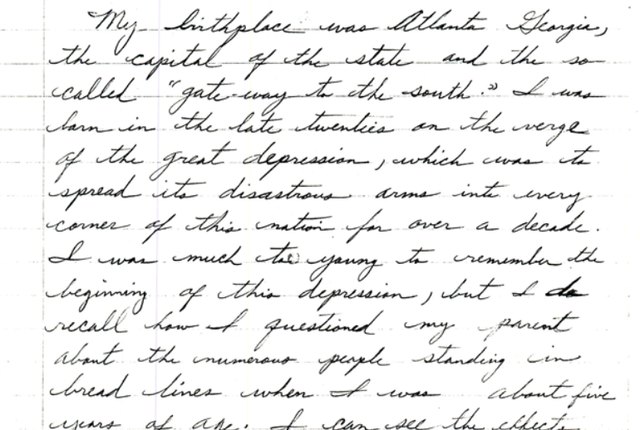 My birthplace was Atlanta Georgia,
the capital of the state and the so
called "gate-way to the south." I was
born in the late twenties on the verge
of the great depression, which was to
spread its disastrous arms into every
corner of this nation for over a decade.
I was much too young to remember the
beginning of this depression, but I do
recall how I questioned my parent
about the numerous people standing in
bread lines when I was about five
years of age. I can see the effects